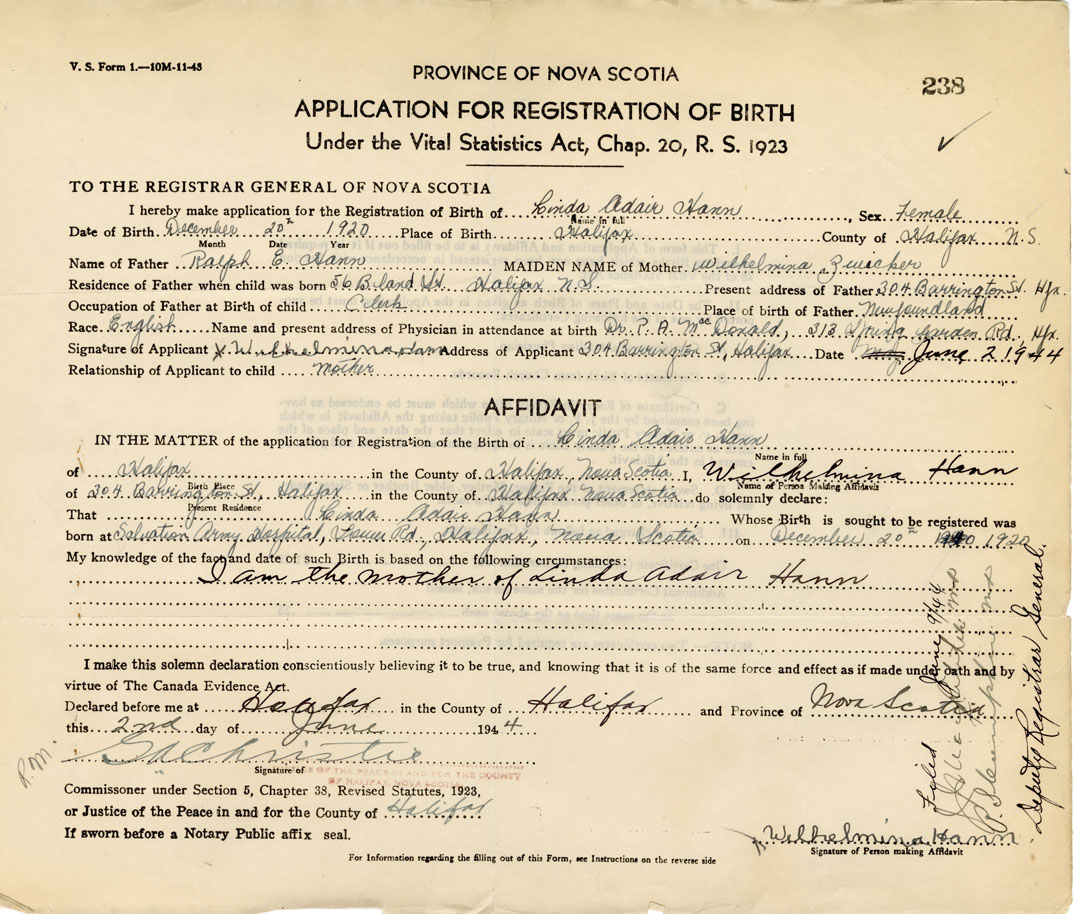 V. S. Form 1.—10M-11-43
PROVINCE OF NOVA SCOTIA
238
APPLICATION FOR REGISTRATION OF BIRTH
Under the Vital Statistics Act, Chap. 20, R. S. 1923
TO THE REGISTRAR GENERAL OF NOVA SCOTIA
I hereby make application for the Registration of Birth of Linda Adair Hann, Sex Female
Name in full
Date of Birth December 20th 1920 Place of Birth Halifax County of Halifax N.S.
Month Date Year
Name of Father Ralph E. Hann MAIDEN NAME of Mother Wilhelmina Zwicker
Residence of Father when child was born 56 Bland St. Halifax N.S. Present address of Father 304 Barrington St. Hfx.
Occupation of Father at Birth of child Clerk Place of birth of Father Newfoundland
Race English Name and present address of Physician in attendance at birth Dr. P. A. MacDonald, 313 Spring Garden Rd., Hfx
Signature of Applicant x Wilhelmina Hann Address of Applicant 304 Barrington St, Halifax Date June 2 1944
Relationship of Applicant to child mother
AFFIDAVIT
IN THE MATTER of the application for Registration of the Birth of Linda Adair Hann
Name in full
of Halifax in the County of Halifax, Nova Scotia I, Wilhelmina Hann
Birth Place Name of Person Making Affidavit
of 304 Barrington St, Halifax in the County of Halifax Nova Scotia do solemnly declare:
Present Residence
That Linda Adair Hann Whose Birth is sought to be registered was
born at Salvation Army Hospital, Rd., Halifax, Nova Scotia on December 20th 1920
My knowledge of the fact and date of such Birth is based on the following circumstances:
I am the mother of Linda Adair Hann
I make this solemn declaration conscientiously believing it to be true, and knowing that it is of the same force and effect as if made under oath and by
virtue of The Canada Evidence Act.
Declared before me at Halifax in the County of Halifax and Province of Nova Scotia
this 2nd day of June 1944
P.M. G A Christie
Signature of
OF THE PEACE IN AND FOR THE COUNTY
OF HALIFAX, NOVA SCOTIA
Commissoner under Section 5, Chapter 38, Revised Statutes, 1923,
or Justice of the Peace in and for the County of Halifax
If sworn before a Notary Public affix seal.
x Wilhelmina Hann
Signature of Person making Affidavit
For Information regarding the filling out of this Form, see Instructions on the reverse side
Fyled June 9/44
Deputy Registrar General.